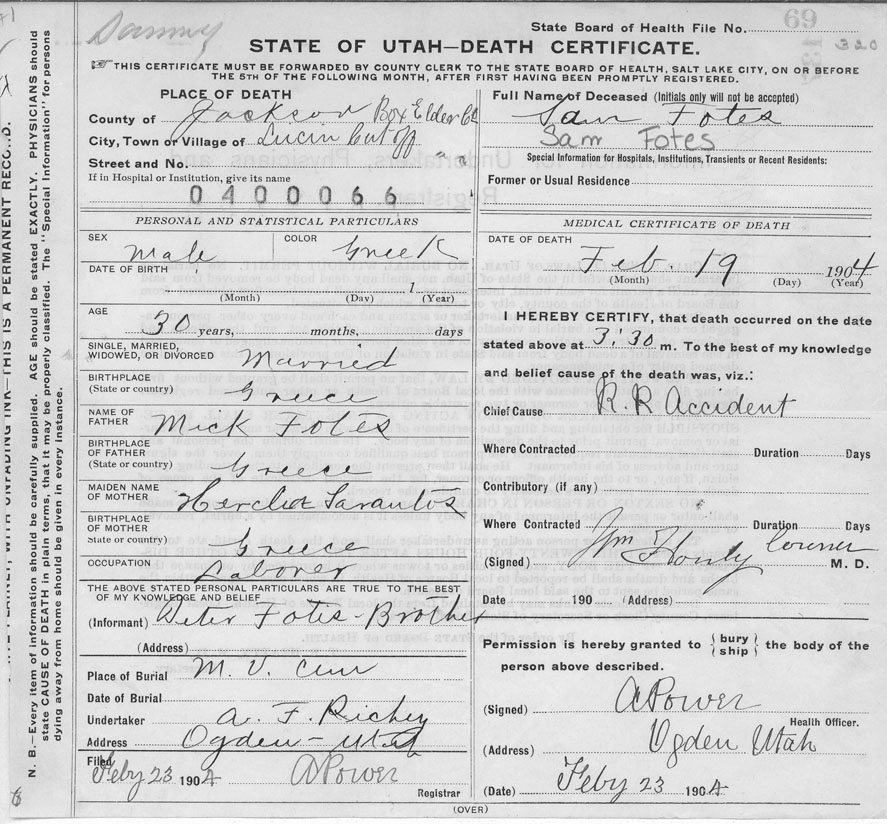 Sammy
State Board of Health File No.
69
320
STATE OF UTAH—DEATH CERTIFICATE.
☞THIS CERTIFICATE MUST BE FORWARDED BY COUNTY CLERK TO THE STATE BOARD OF HEALTH, SALT LAKE CITY, ON OR BEFORE
THE 5TH OF THE FOLLOWING MONTH, AFTER FIRST HAVING BEEN PROMPTLY REGISTERED.
PLACE OF DEATH
County of Jackson Box Elder Co
City, Town or Village of Lucin Cut off
Street and No. " "
If in Hospital or Institution, give its name
0400066
PERSONAL AND STATISTICAL PARTICULARS
SEX Male COLOR Greek
DATE OF BIRTH 1
(Month) (Day) (Year)
AGE 30 years, months, days
SINGLE, MARRIED,
WIDOWED, OR DIVORCED Married
BIRTHPLACE
(State or country) Greece
NAME OF
FATHER Mick Fotes
BIRTHPLACE
OF FATHER
(State or country) Greece
MAIDEN NAME
OF MOTHER Sarantos
BIRTHPLACE
OF MOTHER
State or country) Greece
OCCUPATION Laborer
THE ABOVE STATED PERSONAL PARTICULARS ARE TRUE TO THE BEST
OF MY KNOWLEDGE AND BELIEF
(Informant) Peter Fotes - Brother
(Address)
Place of Burial M. V. Cem
Date of Burial
Undertaker A. F. Richey
Address Ogden - Utah
Filed Feby 23 1904 A Power
Registrar
Full Name of Deceased (Initials only will not be accepted)
Sam Fotes
Sam Fotes
Special Information for Hospitals, Institutions, Transients or Recent Residents:
Former or Usual Residence
MEDICAL CERTIFICATE OF DEATH
DATE OF DEATH
Feb. 19 1904
(Month) (Day) (Year)
I HEREBY CERTIFY, that death occurred on the date
stated above at 3:30 m. To the best of my knowledge
and belief cause of the death was, viz.:
Chief Cause R.R Accident
Where Contracted Duration Days
Contributory (if any)
Where Contracted Duration Days
(Signed) Wm Coroner M. D.
Date 190 (Address)
Permission is hereby granted to { bury ship } the body of the
person above described.
(Signed) A Power
Health Officer.
(Address) Ogden Utah
(Date) Feby 23 1904
(OVER)
N. B.—Every item of information should be carefully supplied. AGE should be stated EXACTLY. PHYSICIANS should
state CAUSE OF DEATH in plain terms, that it may be properly classified. The "Special Information" for persons
dying away from home should be given in every instance.
UNFADING INK—THIS IS A PERMANENT